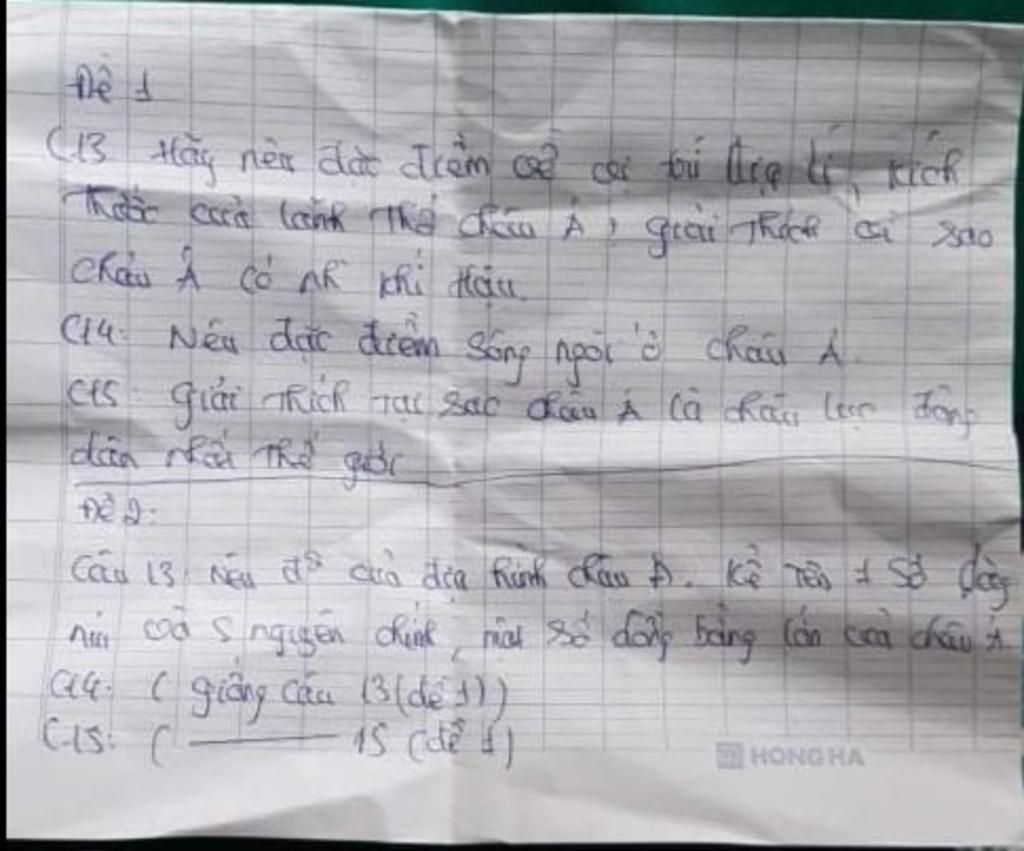 Đề 1
C13 Hãy nêu đặc điểm về vị trí địa lí, kích
thước của lãnh thổ châu Á, giải thích vì sao
châu Á có nh khí hậu.
C14: Nêu đặc điểm sông ngòi ở châu Á.
C15: giải thích tại sao châu Á là châu lục đông
dân nhất thế giới
Đề 2:
Câu 13: Nêu đ² của địa hình châu Á. Kể tên 1 số dãy
núi và S nguyên chính, một số đồng bằng lớn của châu Á
C14: ( giống câu 13 (đề 1))
C15: ( ——— 15 (đề 1)
HONG HA